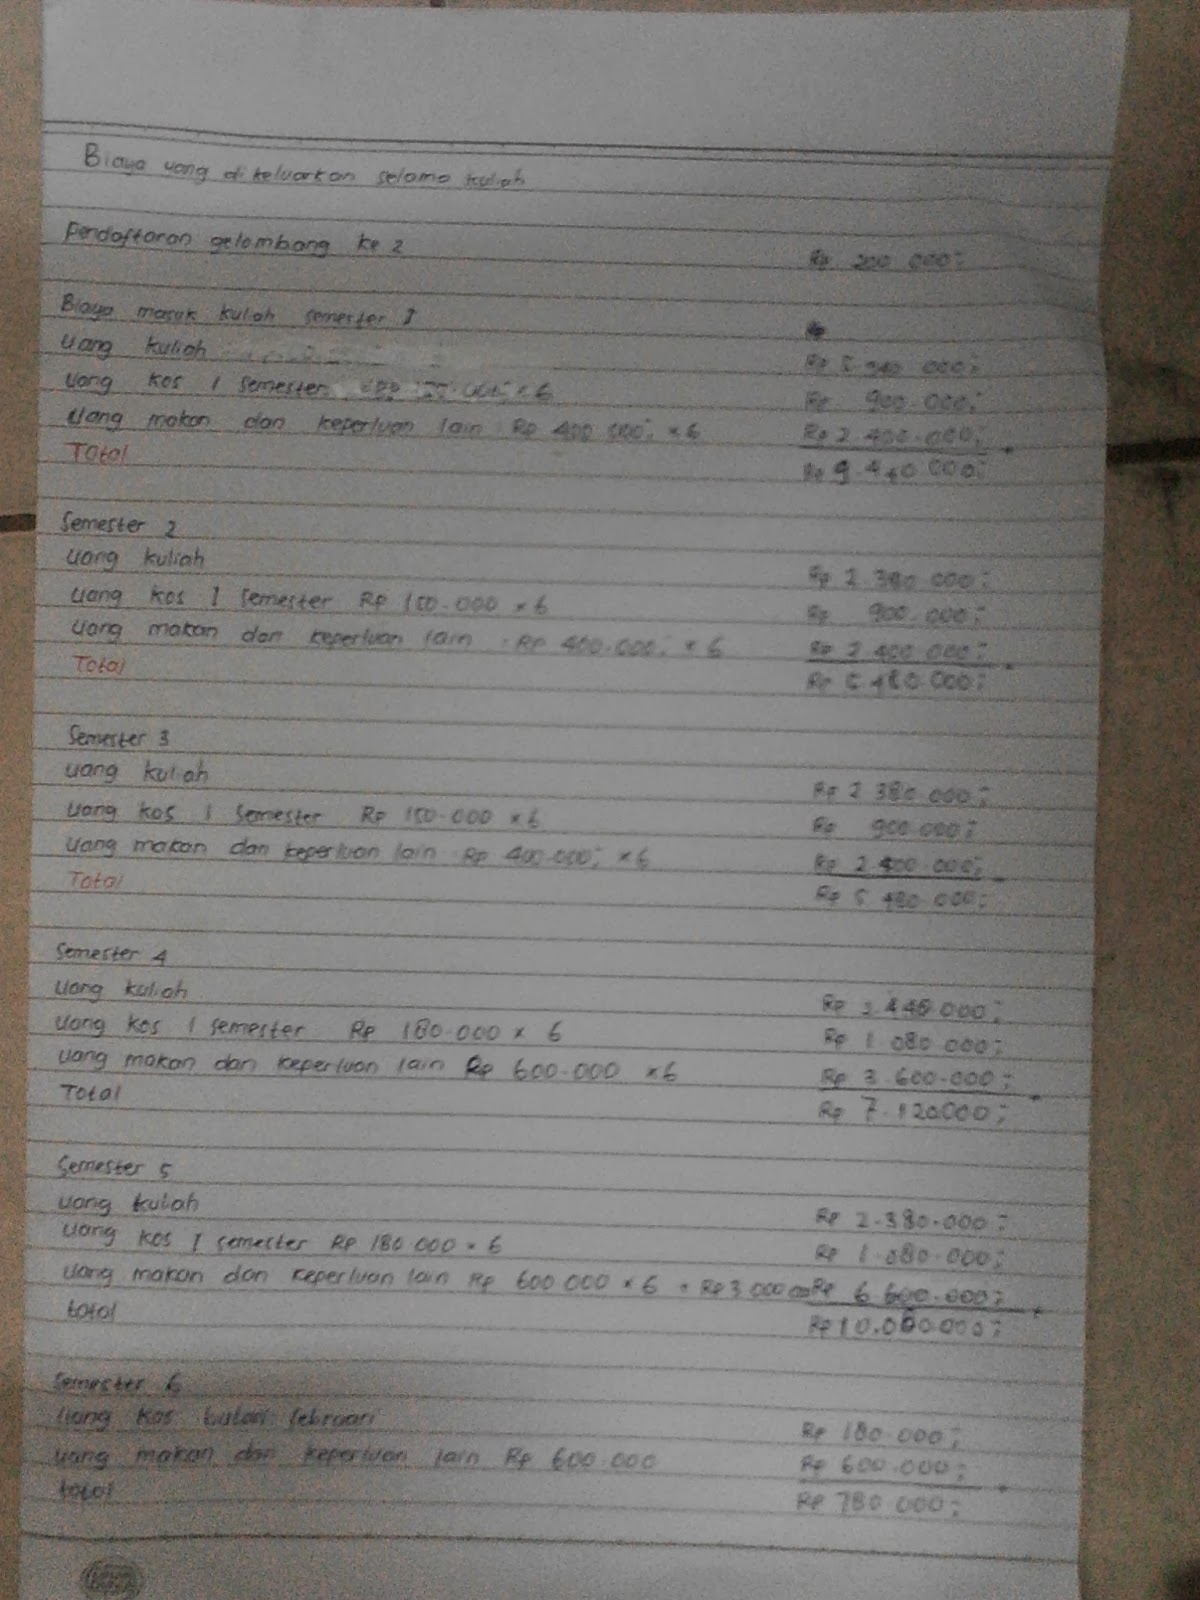 Biaya yang di keluarkan selama kuliah
Pendaftaran gelombang ke 2 Rp 200 000;
Biaya masuk kuliah semester 1 Rp
Uang kuliah Rp 5 940 000;
Uang kos 1 semester × 6 Rp 900.000;
Uang makan dan keperluan lain Rp 400 000; × 6 Rp 2.400.000;
Total Rp 9.440 000;
Semester 2
Uang kuliah Rp 2.380.000;
Uang kos 1 semester Rp 150.000 × 6 Rp 900.000;
Uang makan dan keperluan lain Rp 400.000; × 6 Rp 2 400 000;
Total Rp 5 480.000;
Semester 3
Uang kuliah Rp 2 380 000;
Uang kos 1 semester Rp 150.000 × 6 Rp 900.000;
Uang makan dan keperluan lain Rp 400.000; × 6 Rp 2.400.000;
Total Rp 5 480.000;
Semester 4
Uang kuliah Rp 2.440 000;
Uang kos 1 semester Rp 180.000 × 6 Rp 1 080 000;
Uang makan dan keperluan lain Rp 600.000 × 6 Rp 3.600.000;
Total Rp 7.120.000;
Semester 5
Uang kuliah Rp 2.380.000;
Uang kos 1 semester Rp 180 000 × 6 Rp 1.080.000;
Uang makan dan keperluan lain Rp 600 000 × 6 + Rp 3 000 000 Rp 6 600.000; +
total Rp 10.060.000;
Semester 6
Uang kos bulan februari Rp 180 000;
Uang makan dan keperluan lain Rp 600.000 Rp 600.000;
total Rp 780 000;